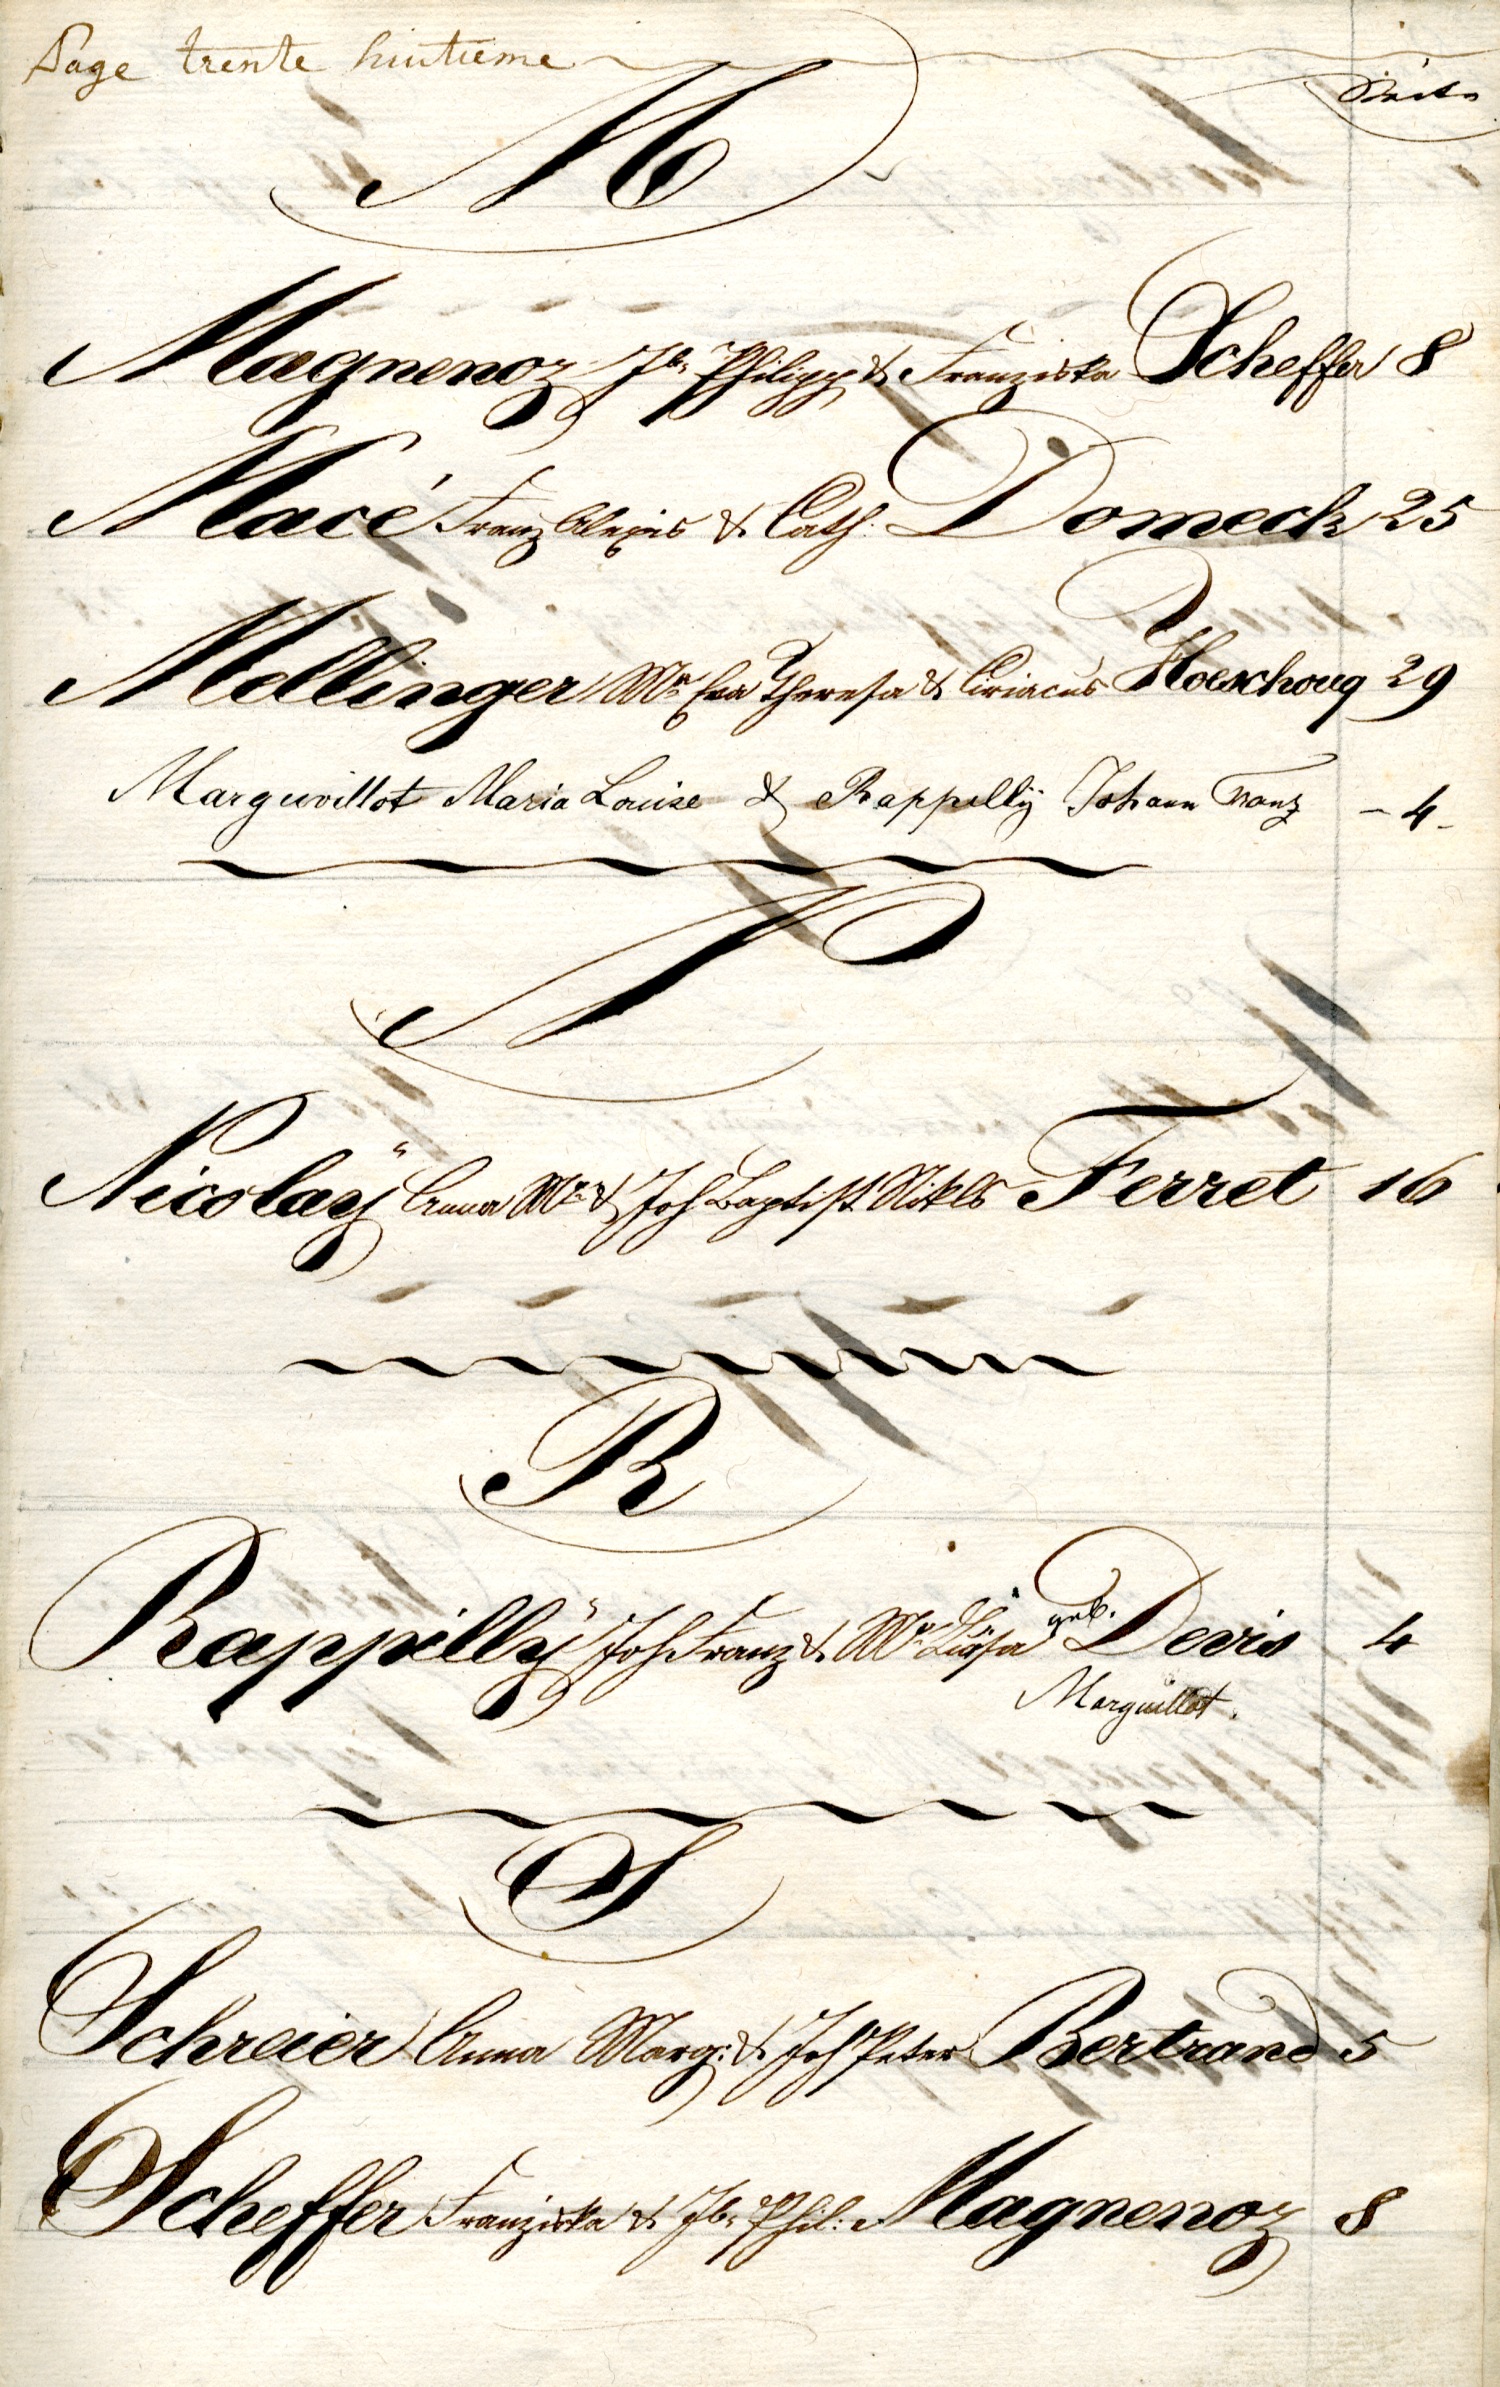 Page trente huitieme
Seite
M
Magnenoz Jb. Philipp & Franziska Scheffer 8
Macé Franz Alexis & Cath: Domeck 25
Mellinger Mª Eva Theresa & Ciriacus Hoeschoug 29
Marguvillot Maria Louise & Rappelly Johann Franz - 4 -
N
Nicolaÿ Anna Mª & Joh Baptist Nikls Ferret 16
R
Rappillÿ Joh Franz & Mª geb. Devis 4
Marguillot.
S
Schreier Anna Marg: & Joh Peter Bertrand 5
Scheffer Franziska & Jb. Phil: Magnenoz 8